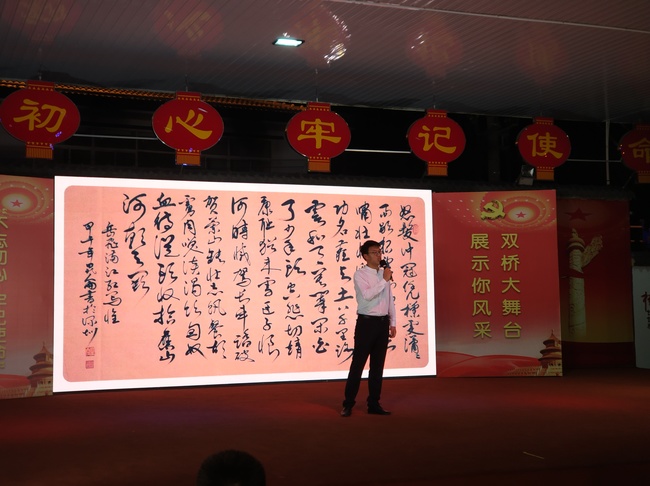 初心牢记使命
怒发冲冠凭栏处潇
雨歇
啸壮
功名尘与土八千里路
云和月莫等闲白
了少年头空悲切靖
康耻犹未雪臣子恨
何时灭驾长车踏破
贺兰山缺壮志饥餐胡
虏肉笑谈渴饮匈奴
血待从头收拾旧山
河朝天阙
岳飞满江红写怀
甲午年书于深圳
双桥大舞台
展示你风采